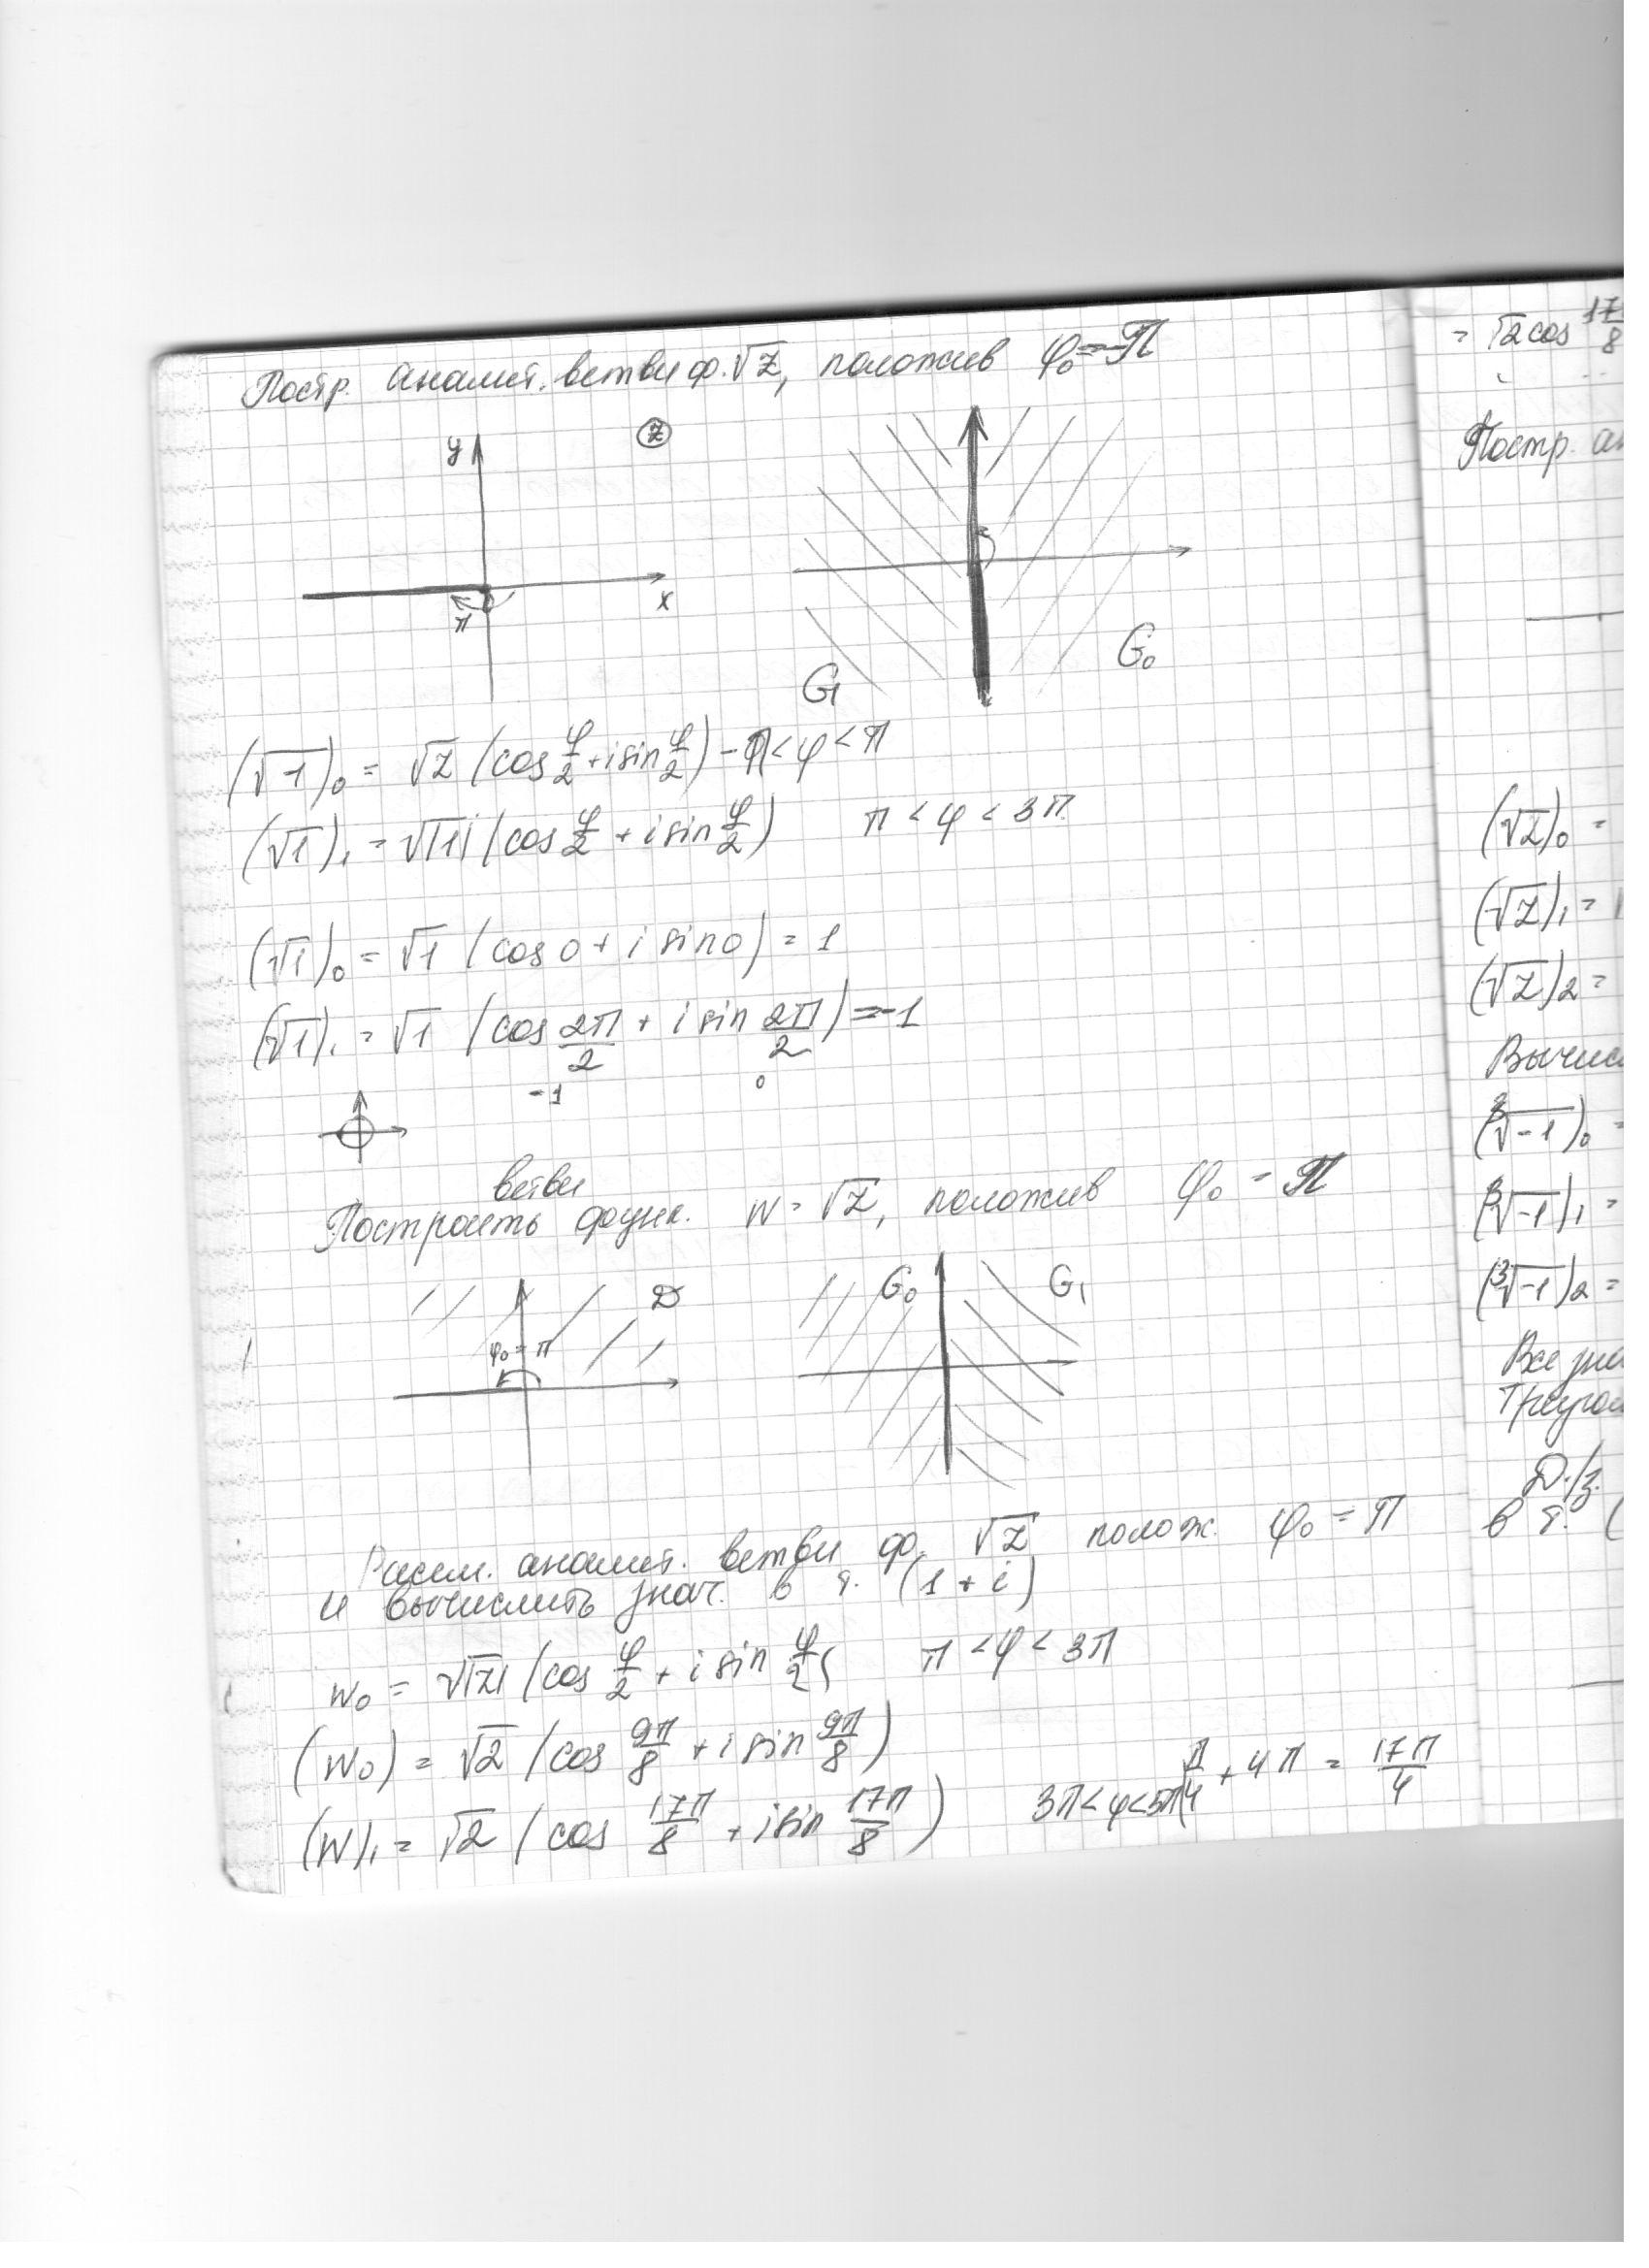 Постр. аналит. ветви ф. √z, положив φ₀ = -π
y
z
x
π
G₁
G₀
(√-1)₀ = √z (cos φ/2 + i sin φ/2) -π < φ < π
(√1)₁ = √|1| (cos φ/2 + i sin φ/2) π < φ < 3π
(√1)₀ = √1 (cos 0 + i sin 0) = 1
(√1)₁ = √1 (cos 2π/2 + i sin 2π/2) = -1
-1 0
ветви
Построить функ. W = √z, положив φ₀ = π
D
φ₀ = π
G₀
G₁
Рассм. аналит. ветви ф. √z полож. φ₀ = π
и вычислить знач. в т. (1 + i)
W₀ = √|z| (cos φ/2 + i sin φ/2( π < φ < 3π
(W₀) = √2 (cos 9π/8 + i sin 9π/8)
(W)₁ = √2 (cos 17π/8 + i sin 17π/8) 3π < φ < 5π π/4 + 4π = 17π/4
= √2 cos 17/8
Постр.
(√z)₀ =
(√z)₁ =
(√z)₂ =
(∛-1)₀ =
(∛-1)₁ =
(∛-1)₂ =
Все
Д./з.
в т. (